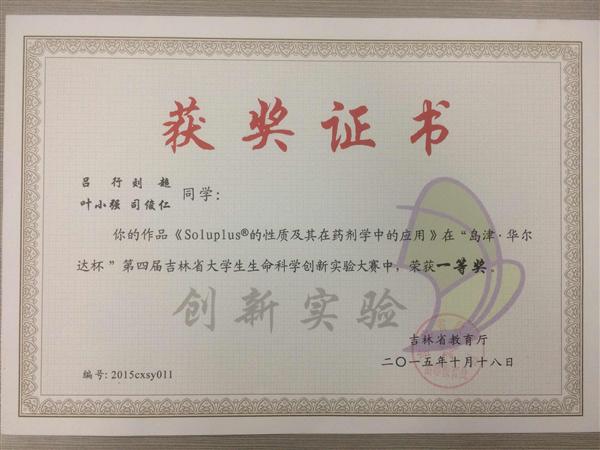 获奖证书
吕 行 刘 超
叶小强 司俊仁
同学:
你的作品《Soluplus®的性质及其在药剂学中的应用》在“岛津·华尔
达杯”第四届吉林省大学生生命科学创新实验大赛中,荣获一等奖。
创新实验
吉林省教育厅
二〇一五年十月十八日
编号: 2015cxsy011